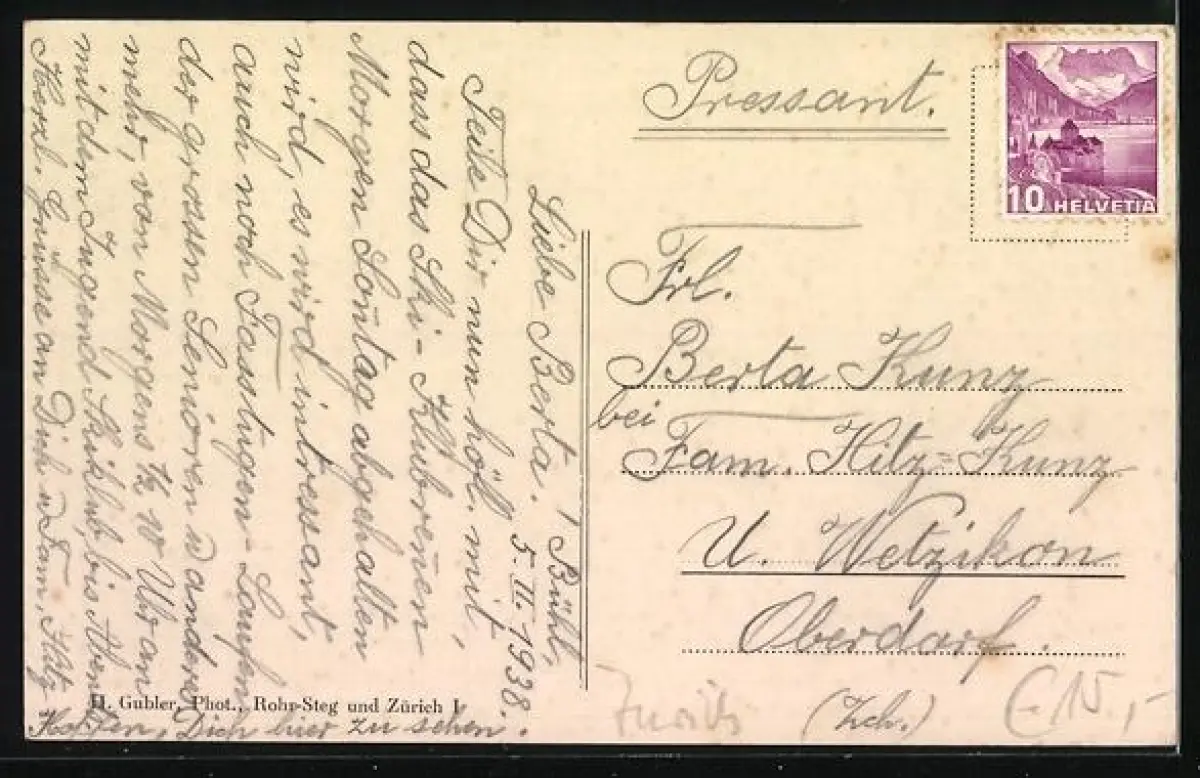 Bühl,
5. II. 1938.
Liebe Berta!
Teile Dir nun höfl. mit,
dass das Ski-Klubrenen
Morgen Sontag abgehalten
wird, es wird intressant,
auch noch Fasstugen-Laufen
der grossen Senioren u andere
mehr, von Morgens ½ 10 Uhr an
mit dem Jugend Skiklub, bis Abend
Herzl. Grüsse an Dich u Fam. Hitz
Hoffen, Dich hier zu sehen.
H. Gubler, Phot., Rohr-Steg und Zürich I
Pressant.
10 HELVETIA
Frl.
Berta Kunz
bei
Fam. Hitz=Kunz
U. Wetzikon
Oberdorf.
(Zch.)
Zürich
€ 15,-